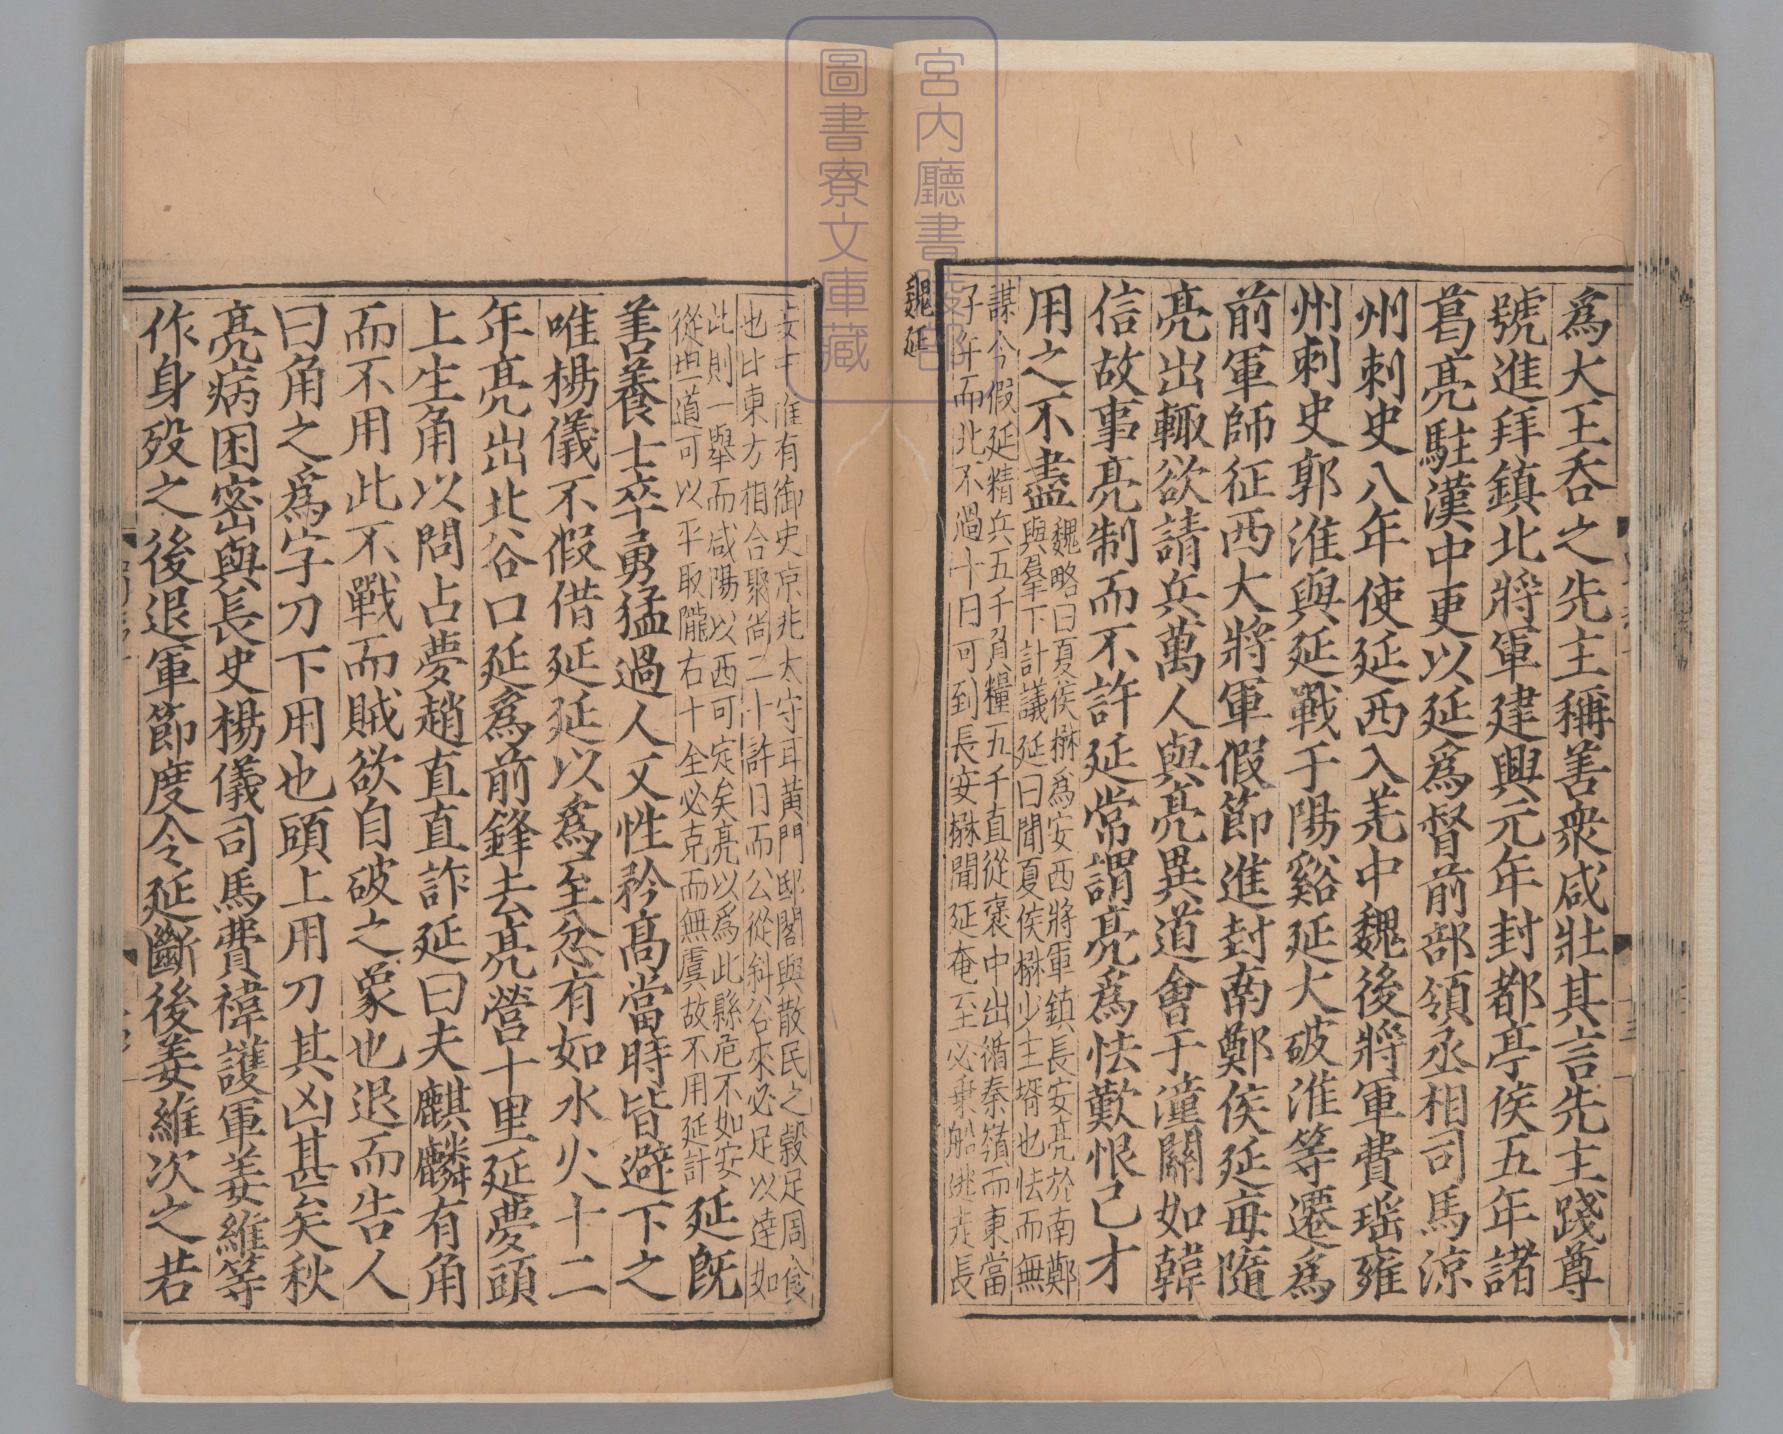 為大王吞之先主稱善衆咸壯其言先主踐尊
號進拜鎮北將軍建興元年封都亭侯五年諸
葛亮駐漢中更以延為督前部領丞相司馬涼
州刺史八年使延西入羌中魏後將軍費瑶雍
州刺史郭淮與延戰于陽谿延大破淮等遷為
前軍師征西大將軍假節進封南鄭侯延每隨
亮出輙欲請兵萬人與亮異道會于潼關如韓
信故事亮制而不許延常謂亮為怯歎恨己才
用之不盡
魏略曰夏侯楙為安西將軍鎮長安亮於南鄭
與羣下計議延曰聞夏侯楙少主壻也怯而無
謀今假延精兵五千負糧五千直從襃中出循秦嶺而東當
子午而北不過十日可到長安楙聞延奄至必乗船逃走長
魏延
安中惟有御史京兆太守耳黃門邸閣與散民之穀足周食
也比東方相合聚尚二十許日而公從斜谷來必足以逹如
此則一舉而咸陽以西可定矣亮以為此縣危不如安
從坦道可以平取隴右十全必克而無虞故不用延計
延旣
善養士卒勇猛過人又性矜髙當時皆避下之
唯楊儀不假借延延以為至忿有如水火十二
年亮出北谷口延為前鋒去亮營十里延夢頭
上生角以問占夢趙直直詐延曰夫麒麟有角
而不用此不戰而賊欲自破之象也退而告人
曰角之為字刀下用也頭上用刀其凶甚矣秋
亮病困密與長史楊儀司馬費禕護軍姜維等
作身歿之後退軍節度令延斷後姜維次之若
宮内廳書陵部
圖書寮文庫藏